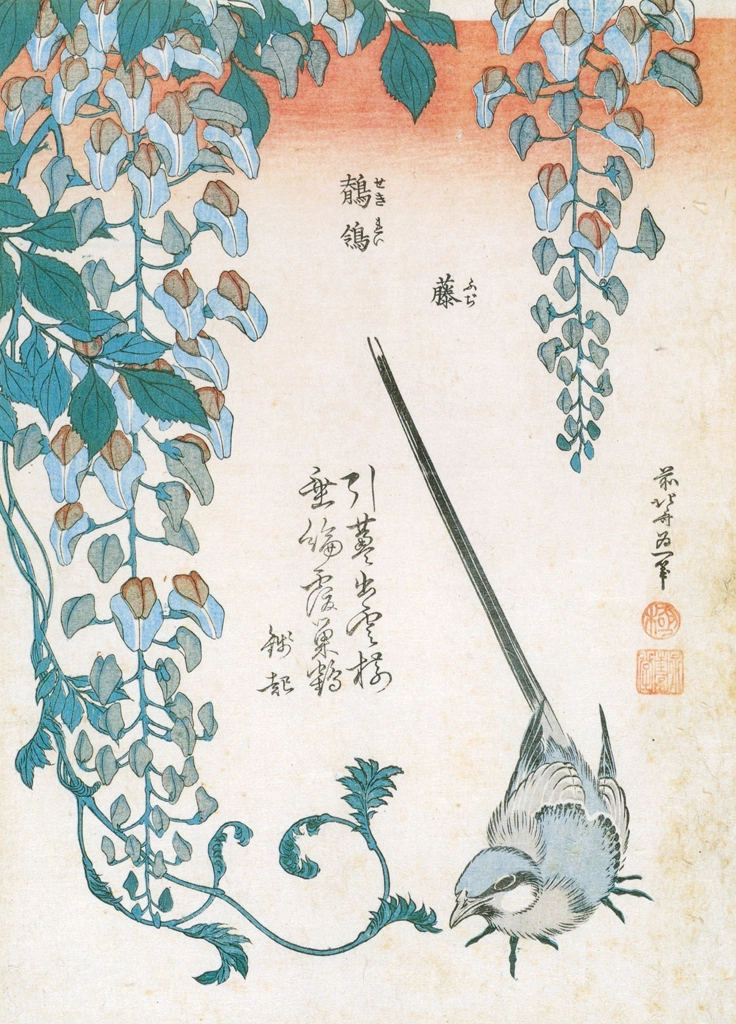 鶺鴒
せきれい
藤
ふぢ
引蔓出雲樹
垂綸覆巣鶴
銭起
前北斎為一筆